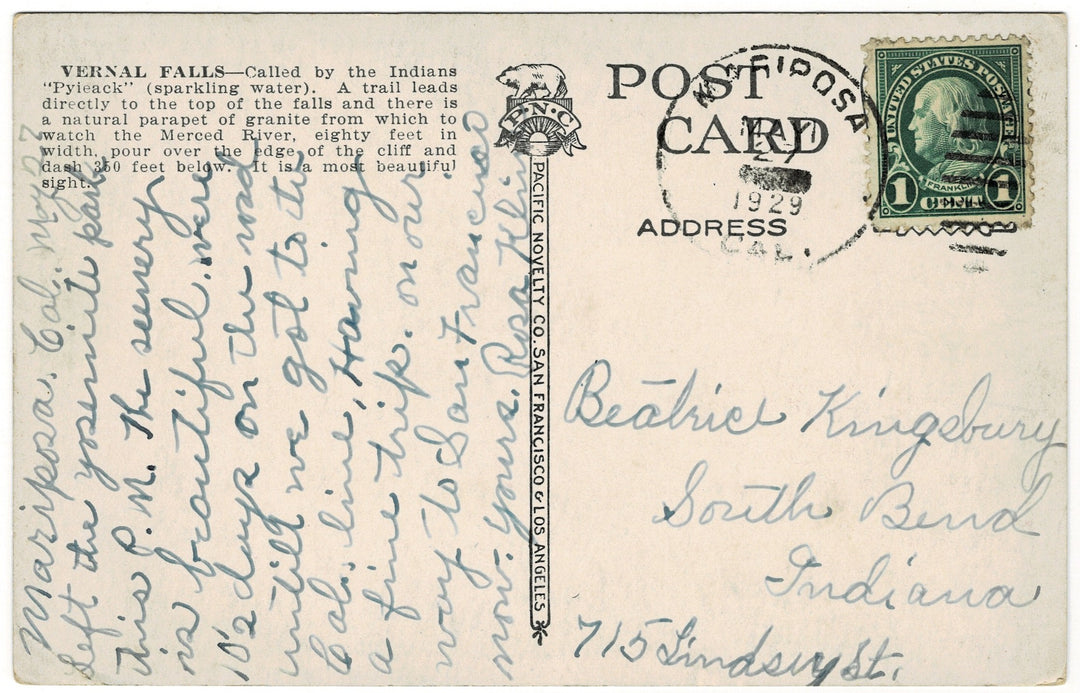 VERNAL FALLS—Called by the Indians
"Pyieack" (sparkling water). A trail leads
directly to the top of the falls and there is
a natural parapet of granite from which to
watch the Merced River, eighty feet in
width, pour over the edge of the cliff and
dash 350 feet below. It is a most beautiful
sight.
Mariposa. Cal. May 27
Left the yosemite park
this P.M. The seenery
is beautiful. were
10 2 days on the road
untill we got to the
Cal. line, Having
a fine trip. on our
way to San Francisco
now. yours. Rosa Kline
P·N·C
PACIFIC NOVELTY CO. SAN FRANCISCO & LOS ANGELES
POST
CARD
ADDRESS
MARIPOSA
MAY
27
1929
CAL.
UNITED STATES POSTAGE
FRANKLIN
1 CENT 1
Beatrice Kingsbury
South Bend
Indiana
715 Lindsey St.